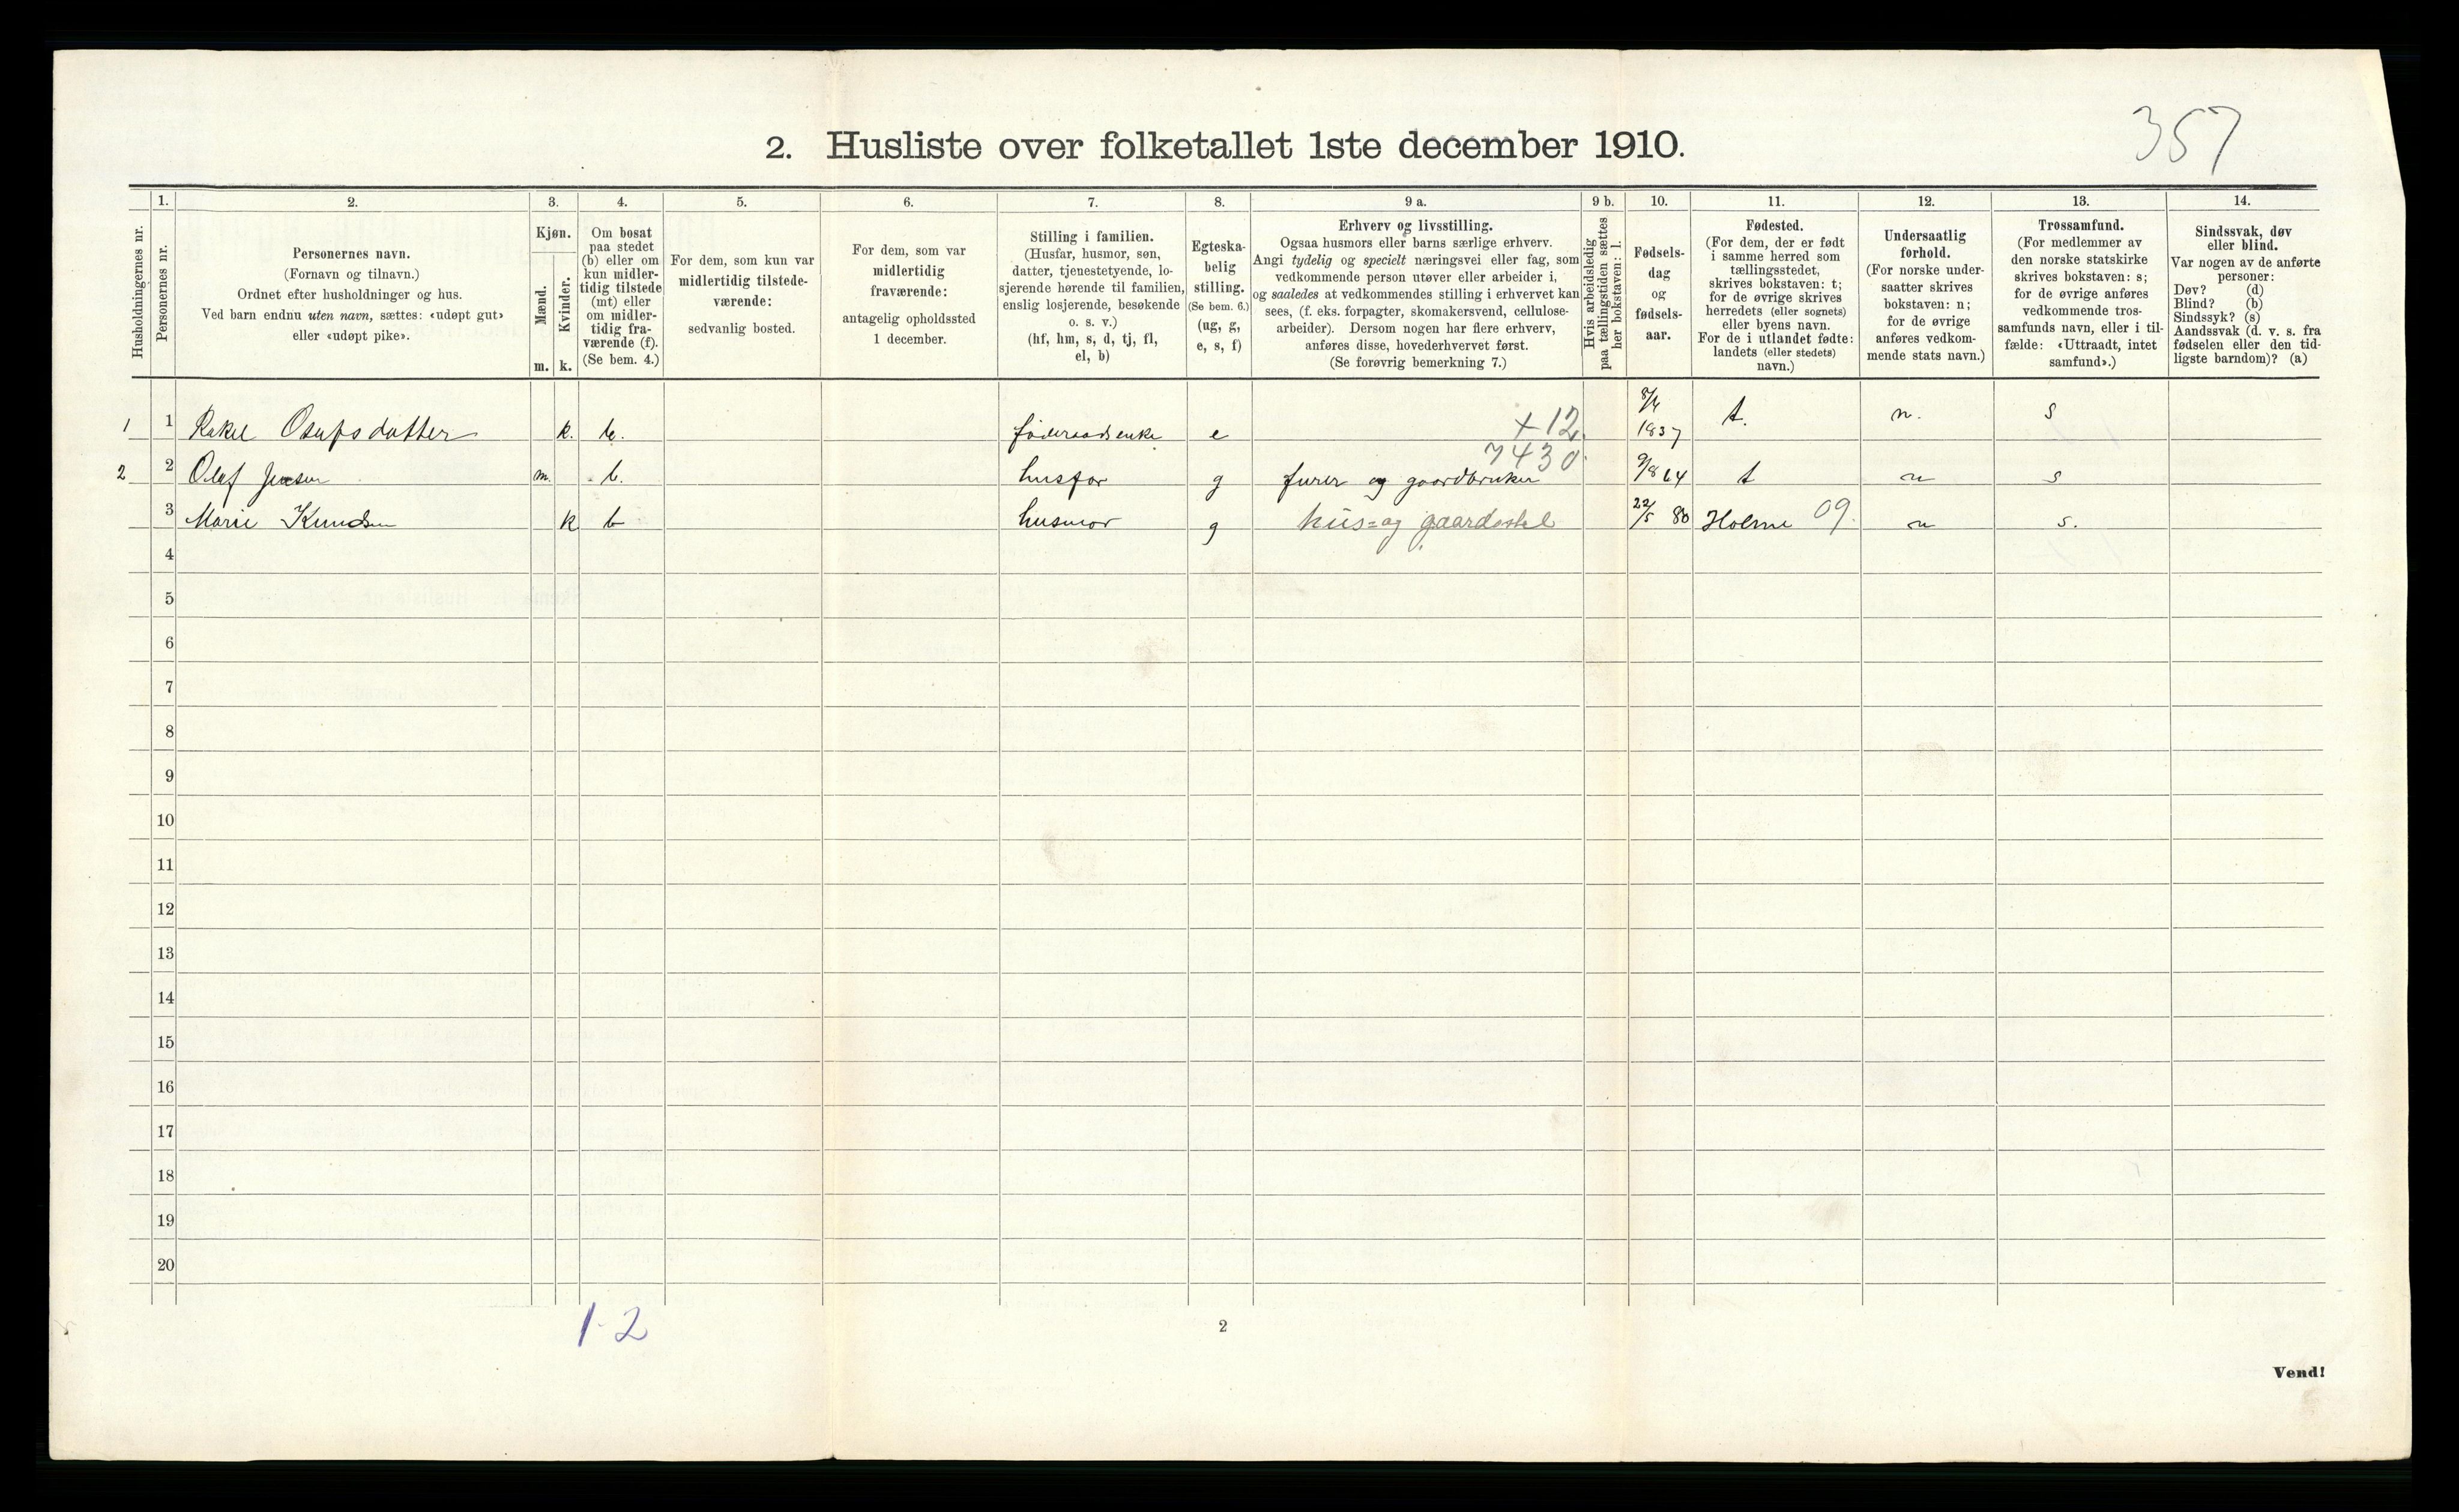 357
2. Husliste over folketallet 1ste december 1910.
Husholdningernes nr.
1.
Personernes nr.
2.
Personernes navn.
(Fornavn og tilnavn.)
Ordnet efter husholdninger og hus.
Ved barn endnu uten navn, sættes: «udøpt gut»
eller «udøpt pike».
3.
Kjøn.
Mænd.
Kvinder.
m. k.
4.
Om bosat
paa stedet
(b) eller om
kun midler-
tidig tilstede
(mt) eller
om midler-
tidig fra-
værende (f).
(Se bem. 4.)
5.
For dem, som kun var
midlertidig tilstede-
værende:
sedvanlig bosted.
6.
For dem, som var
midlertidig
fraværende:
antagelig opholdssted
1 december.
7.
Stilling i familien.
(Husfar, husmor, søn,
datter, tjenestetyende, lo-
sjerende hørende til familien,
enslig losjerende, besøkende
o. s. v.)
(hf, hm, s, d, tj, fl,
el, b)
8.
Egteska-
belig
stilling.
(Se bem. 6.)
(ug, g,
e, s, f)
9 a.
Erhverv og livsstilling.
Ogsaa husmors eller barns særlige erhverv.
Angi tydelig og specielt næringsvei eller fag, som
vedkommende person utøver eller arbeider i,
og saaledes at vedkommendes stilling i erhvervet kan
sees, (f. eks. forpagter, skomakersvend, cellulose-
arbeider). Dersom nogen har flere erhverv,
anføres disse, hovederhvervet først.
(Se forøvrig bemerkning 7.)
9 b.
Hvis arbeidsledig
paa tællingstiden sættes
her bokstaven: l.
10.
Fødsels-
dag
og
fødsels-
aar.
11.
Fødested.
(For dem, der er født
i samme herred som
tællingsstedet,
skrives bokstaven: t;
for de øvrige skrives
herredets (eller sognets)
eller byens navn.
For de i utlandet fødte:
landets (eller stedets)
navn.)
12.
Undersaatlig
forhold.
(For norske under-
saatter skrives
bokstaven: n;
for de øvrige
anføres vedkom-
mende stats navn.)
13.
Trossamfund.
(For medlemmer av
den norske statskirke
skrives bokstaven: s;
for de øvrige anføres
vedkommende tros-
samfunds navn, eller i til-
fælde: «Uttraadt, intet
samfund».)
14.
Sindssvak, døv
eller blind.
Var nogen av de anførte
personer:
Døv? (d)
Blind? (b)
Sindssyk? (s)
Aandssvak (d. v. s. fra
fødselen eller den tid-
ligste barndom)? (a)
1 1 Rakel Osufsdatter k. b. føderaadsenke e +12 8/4 1837 t. n. s
7430
2 2 Olaf Jensen m. b. husfar g furer og gaardbruker 9/8 64 t n s
3 Marie Knudsen k b husmor g hus= og gaardsstel 22/5 80 Holme 09. n s.
4
5
6
7
8
9
10
11
12
13
14
15
16
17
18
19
20
1-2
2
Vend!